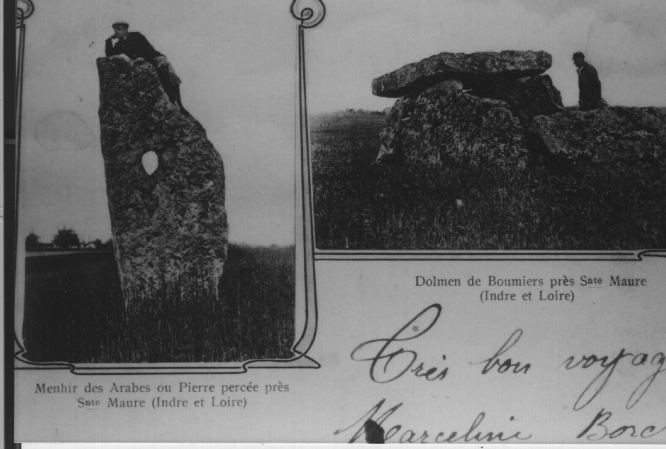 Dolmen de Boumiers près Snte Maure
(Indre et Loire)
Menhir des Arabes ou Pierre percée près
Snte Maure (Indre et Loire)
Très bon voyag
Marceline Borc